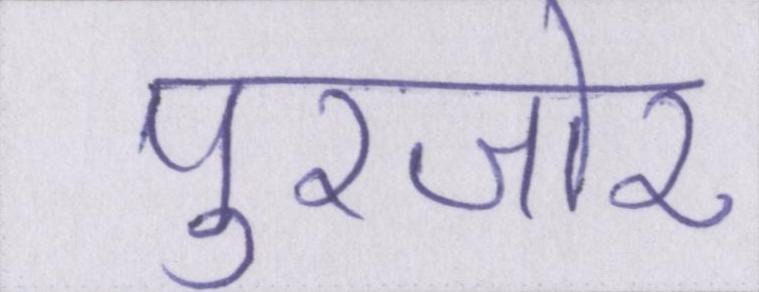 पुरजोर